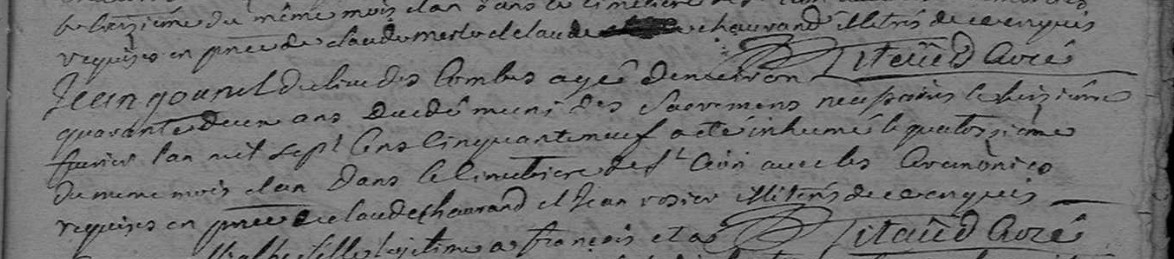 le treizième du même mois et an dans le cimetière de
requises en pnce de claude merle et claude chaurand illitrés de ce enquis
Titaud Curé
Jean gounet du lieu des Combes agé denviron
quarante deux ans decedé muni des Sacremens necessaires le treizième
fevrier l'an mil sept Cens Cinquante neuf a eté inhumé le quatorzième
du meme mois et an Dans le Cimetiere de St avec les Ceremonies
requises en pnce de claude chaurand et Jean rosier illitérés de ce enquis
Titaud Curé
fille legitime a françois et a